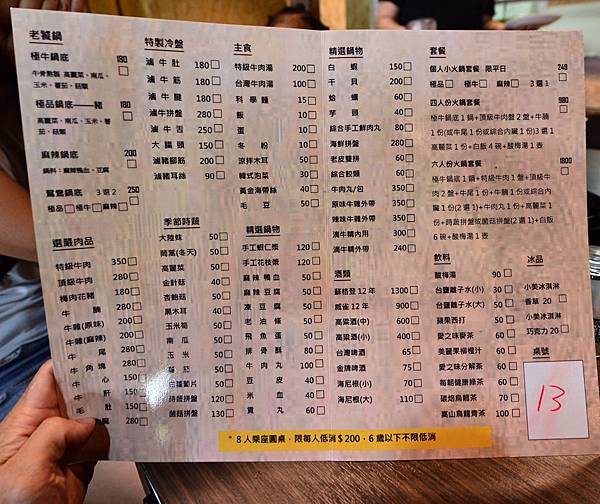 老饕鍋
極牛鍋底 180
牛骨熬製 高麗菜、南瓜、
玉米、蕃茄、菇類
極品鍋底—豬 180
高麗菜、南瓜、玉米、蕃
茄、菇類
麻辣鍋底 200
鍋料:麻辣鴨血、豆腐
鴛鴦鍋底 3選2 250
極品□極牛□麻辣□
選嚴肉品
特級牛肉 350□
頂級牛肉 280□
梅肉花豬 180□
牛腩 280□
牛雜(原味) 200□
牛雜(麻辣) 200□
牛尾 280□
牛角塊 280□
牛心 150□
牛肝 150□
毛肚
280□
特製冷盤
滷牛肚 180□
滷牛筋 180□
滷牛腱 180□
滷牛拼盤 280□
滷牛舌 250□
大腸頭 150□
滷豬腳筋 200□
滷豬耳絲 90□
季節時蔬
大陸妹 50□
茼蒿(冬天) 50□
高麗菜 50□
金針菇 40□
杏鮑菇 50□
黑木耳 40□
玉米筍 50□
南瓜 50□
玉米 50□
50□
50□
時蔬拼盤 120□
菌菇拼盤 130□
主食
特級牛肉湯 200□
台灣牛肉湯 100□
科學麵 15□
飯 10□
蛋 10□
冬粉 10□
涼拌木耳 50□
韓式泡菜 30□
黃金海帶絲 40□
毛豆 50□
精選鍋物
手工蝦仁漿 120□
手工花枝漿 120□
麻辣鴨血 50□
麻辣豆腐 50□
凍豆腐 50□
老油條 50□
飛魚蛋 50□
排骨酥 80□
牛肉丸 100□
豆皮 40□
米血 40□
貢丸 60□
精選鍋物
白蝦 150□
干貝 200□
蛤蠣 60□
芋頭 40□
綜合手工鮮肉丸 80□
海鮮拼盤 280□
老皮雙拼 60□
綜合餃類 60□
牛肉丸/包 350□
原味牛雜外帶 350□
辣味牛雜外帶 350□
滴牛精內用 300□
滴牛精外帶 240□
酒類
蘇格登12年 1300□
威雀12年 900□
高粱酒(中) 600□
高粱酒(小) 400□
台灣啤酒 65□
金牌啤酒 75□
海尼根(小) 70□
海尼根(大) 110□
套餐
個人小火鍋套餐 限平日 249
極品□ 極牛□ 麻辣□ 3選1
四人份火鍋套餐 980
極牛鍋底1鍋+頂級牛肉盤2盤+牛腩
1份(或牛尾1份或綜合內臟1份)3選1
高麗菜1份+白飯4碗+酸梅湯1壺
六人份火鍋套餐 1800
極牛鍋底1鍋+特級牛肉1盤+頂級牛
肉2盤+牛尾1份+牛腩1份或綜合內
臟1份(2選1)+牛肉丸1份+高麗菜1
份+時蔬拼盤或菌菇拼盤(2選1)+白飯
6碗+酸梅湯1壺
飲料
酸梅湯 90□
台鹽離子水(小) 30□
台鹽離子水(大) 50□
蘋果西打 50□
愛之味麥茶 60□
美麗果檸檬汁 60□
愛之味分解茶 60□
每朝健康綠茶 60□
碳焙烏龍茶 60□
高山烏龍青茶 100□
冰品
小美冰淇淋
香草 20□
小美冰淇淋
巧克力 20□
桌號
13
*8人乘座圓桌,限每人低消$200,6歲以下不限低消